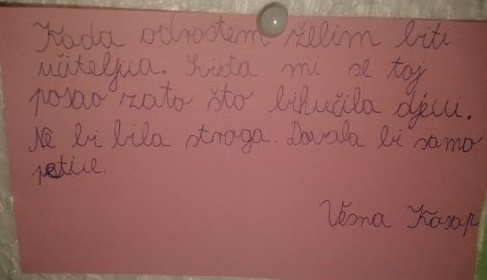 Kada odrastem želim biti
učiteljica. Sviđa mi se taj
posao zato što bihučila djecu.
Ne bi bila stroga. Davala bi samo
petice.
Vesna Kasap